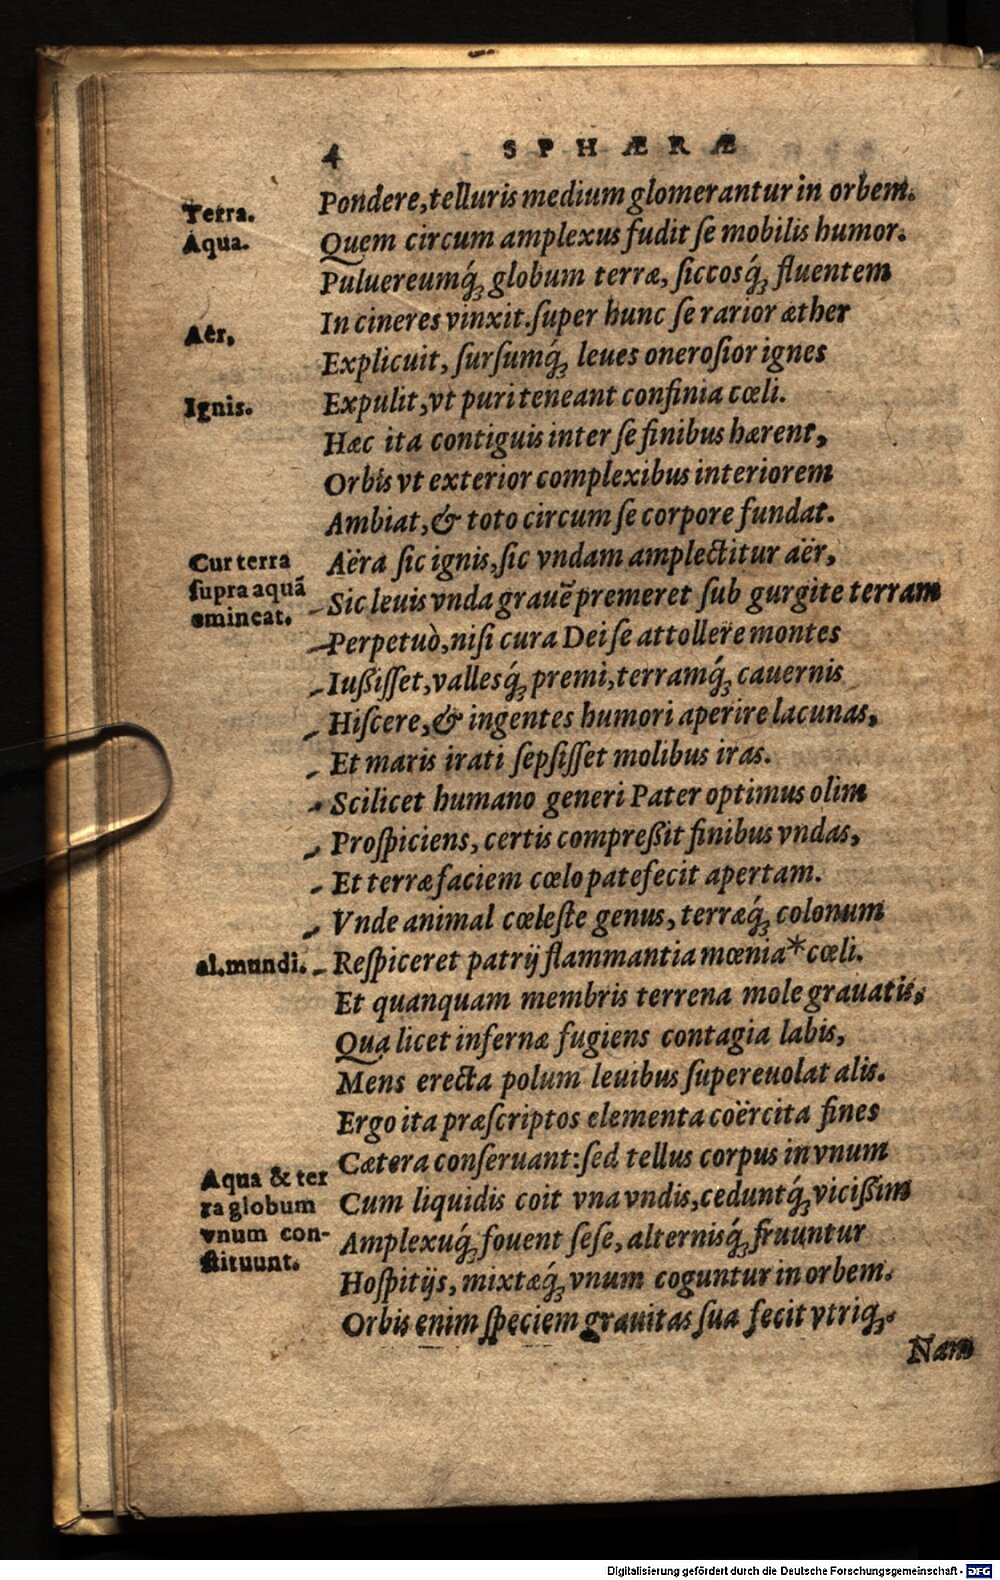 4 SPHÆRÆ
Pondere, telluris medium glomerantur in orbem.
Terra.
Aqua.
Quem circum amplexus fudit ſe mobilis humor.
Puluereumq́ꝫ globum terræ, ſiccosq́ꝫ fluentem
In cineres vinxit. ſuper hunc ſe rarior æther
Aër.
Explicuit, ſurſumq́ꝫ leues oneroſior ignes
Ignis.
Expulit, vt puri teneant confinia cœli.
Hæc ita contiguis inter ſe finibus hærent,
Orbis vt exterior complexibus interiorem
Ambiat, & toto circum ſe corpore fundat.
Cur terra
ſupra aquā
emineat.
Aëra ſic ignis, ſic vndam amplectitur aër,
Sic leuis vnda grauē premeret ſub gurgite terram
Perpetuò, niſi cura Dei ſe attollere montes
Iußiſſet, vallesq́ꝫ premi, terramq́ꝫ cauernis
Hiſcere, & ingentes humori aperire lacunas,
Et maris irati ſepſiſſet molibus iras.
Scilicet humano generi Pater optimus olim
Proſpiciens, certis compreßit finibus vndas,
Et terræ faciem cœlo patefecit apertam.
Vnde animal cœleſte genus, terræq́ꝫ colonum
al. mundi.
Reſpiceret patrij flammantia mœnia* cœli.
Et quanquam membris terrena mole grauatis,
Qua licet infernæ fugiens contagia labis,
Mens erecta polum leuibus ſupereuolat alis.
Ergo ita præſcriptos elementa coërcita fines
Cætera conſeruant: ſed tellus corpus in vnum
Aqua & ter
ra globum
vnum con-
ſtituunt.
Cum liquidis coit vna vndis, ceduntq́ꝫ vicißim
Amplexuq́ꝫ fouent ſeſe, alternisq́ꝫ fruuntur
Hoſpitijs, mixtæq́ꝫ vnum coguntur in orbem.
Orbis enim ſpeciem grauitas ſua fecit vtriqꝫ.
Nam
Digitalisierung gefördert durch die Deutsche Forschungsgemeinschaft - DFG